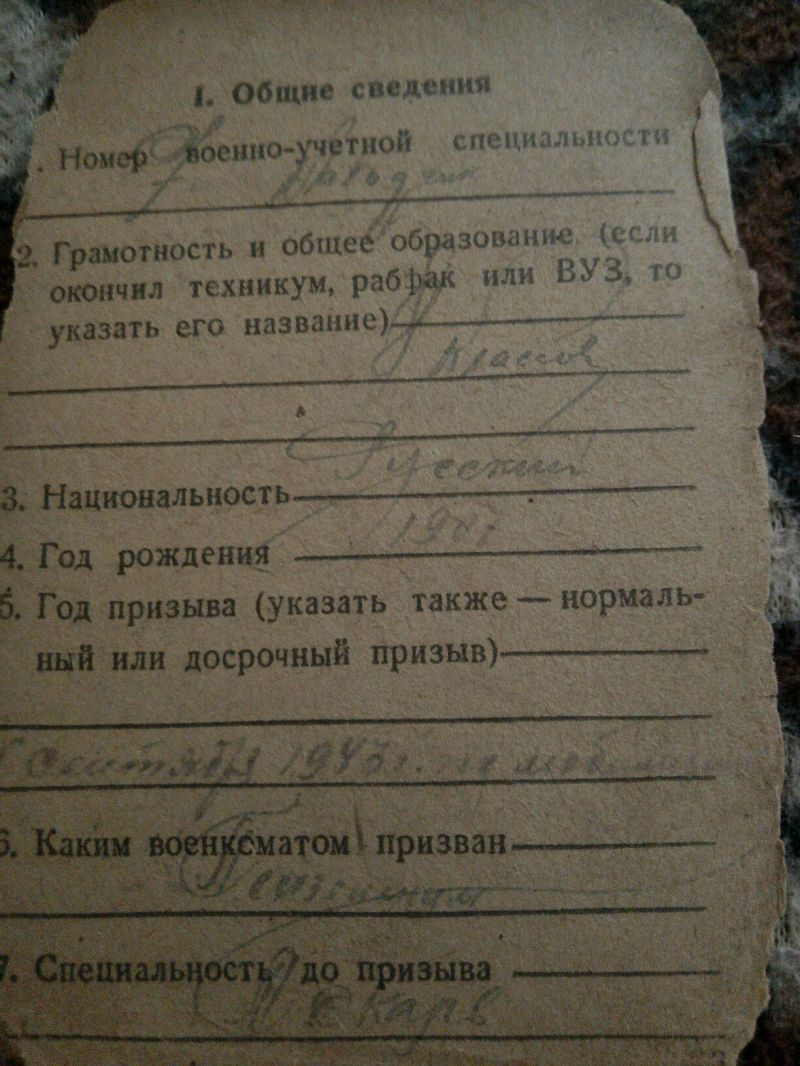 I. Общие сведения
. Номер военно-учетной специальности
2. Грамотность и общее образование (если
окончил техникум, рабфак или ВУЗ, то
указать его название)
Классов
Русский
3. Национальность
1907
4. Год рождения
5. Год призыва (указать также — нормаль-
ный или досрочный призыв)
Сентября 1943 г. по
6. Каким военкоматом призван
7. Специальность до призыва
Пекарь